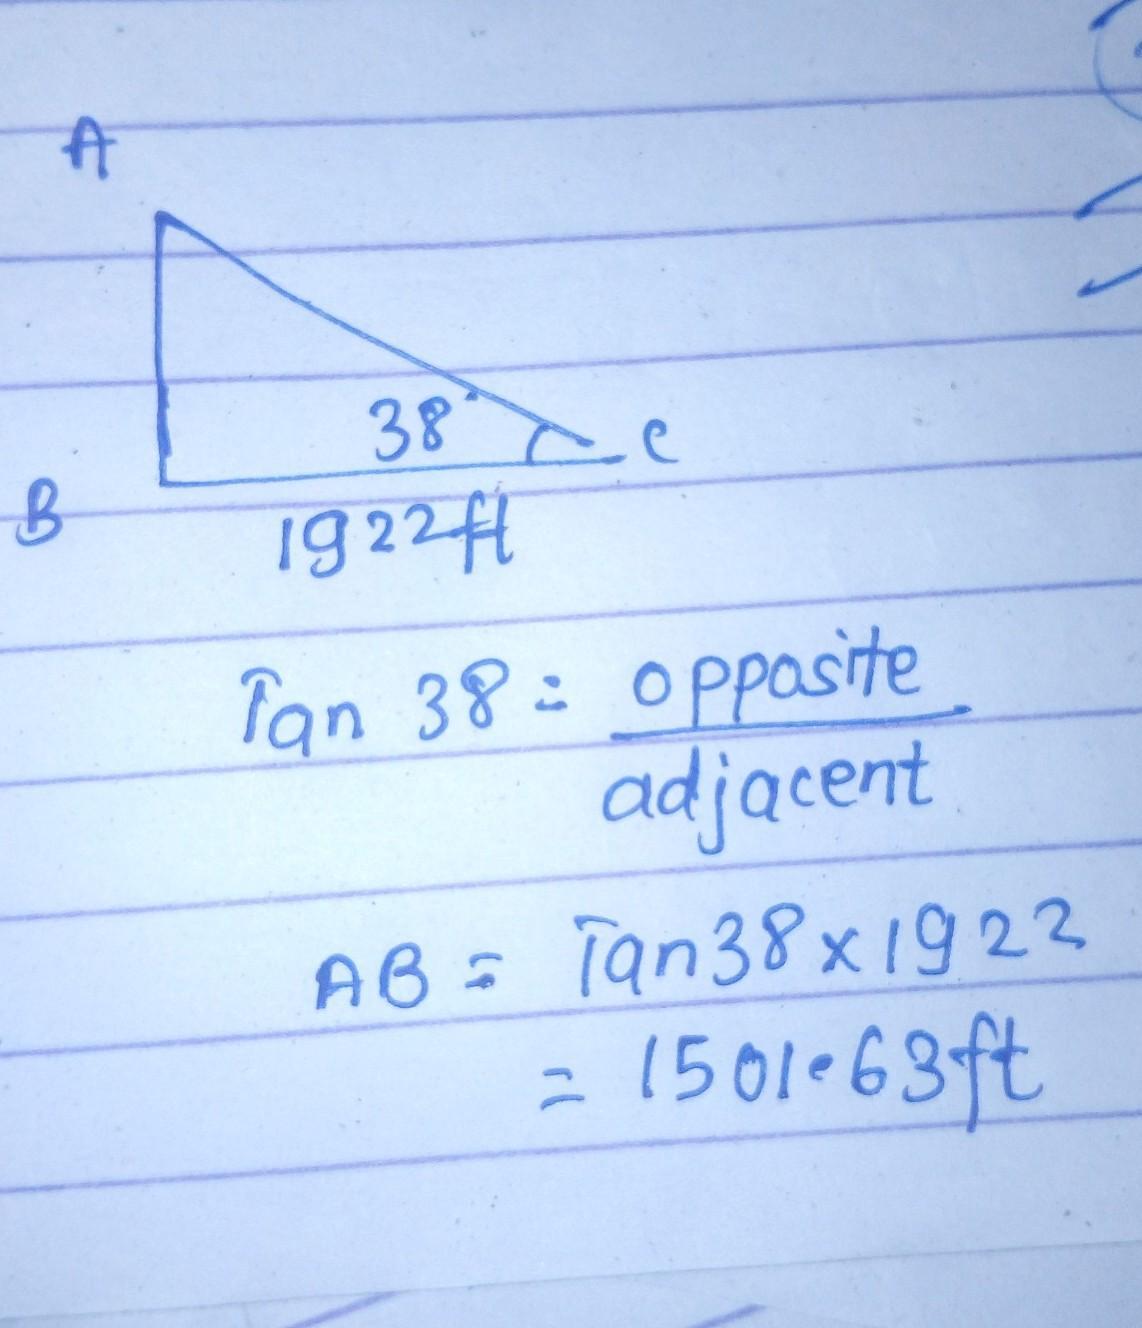 A
38°
C
B
1922ft
Tan 38 = opposite
adjacent
AB = Tan38x1922
= 1501.63ft